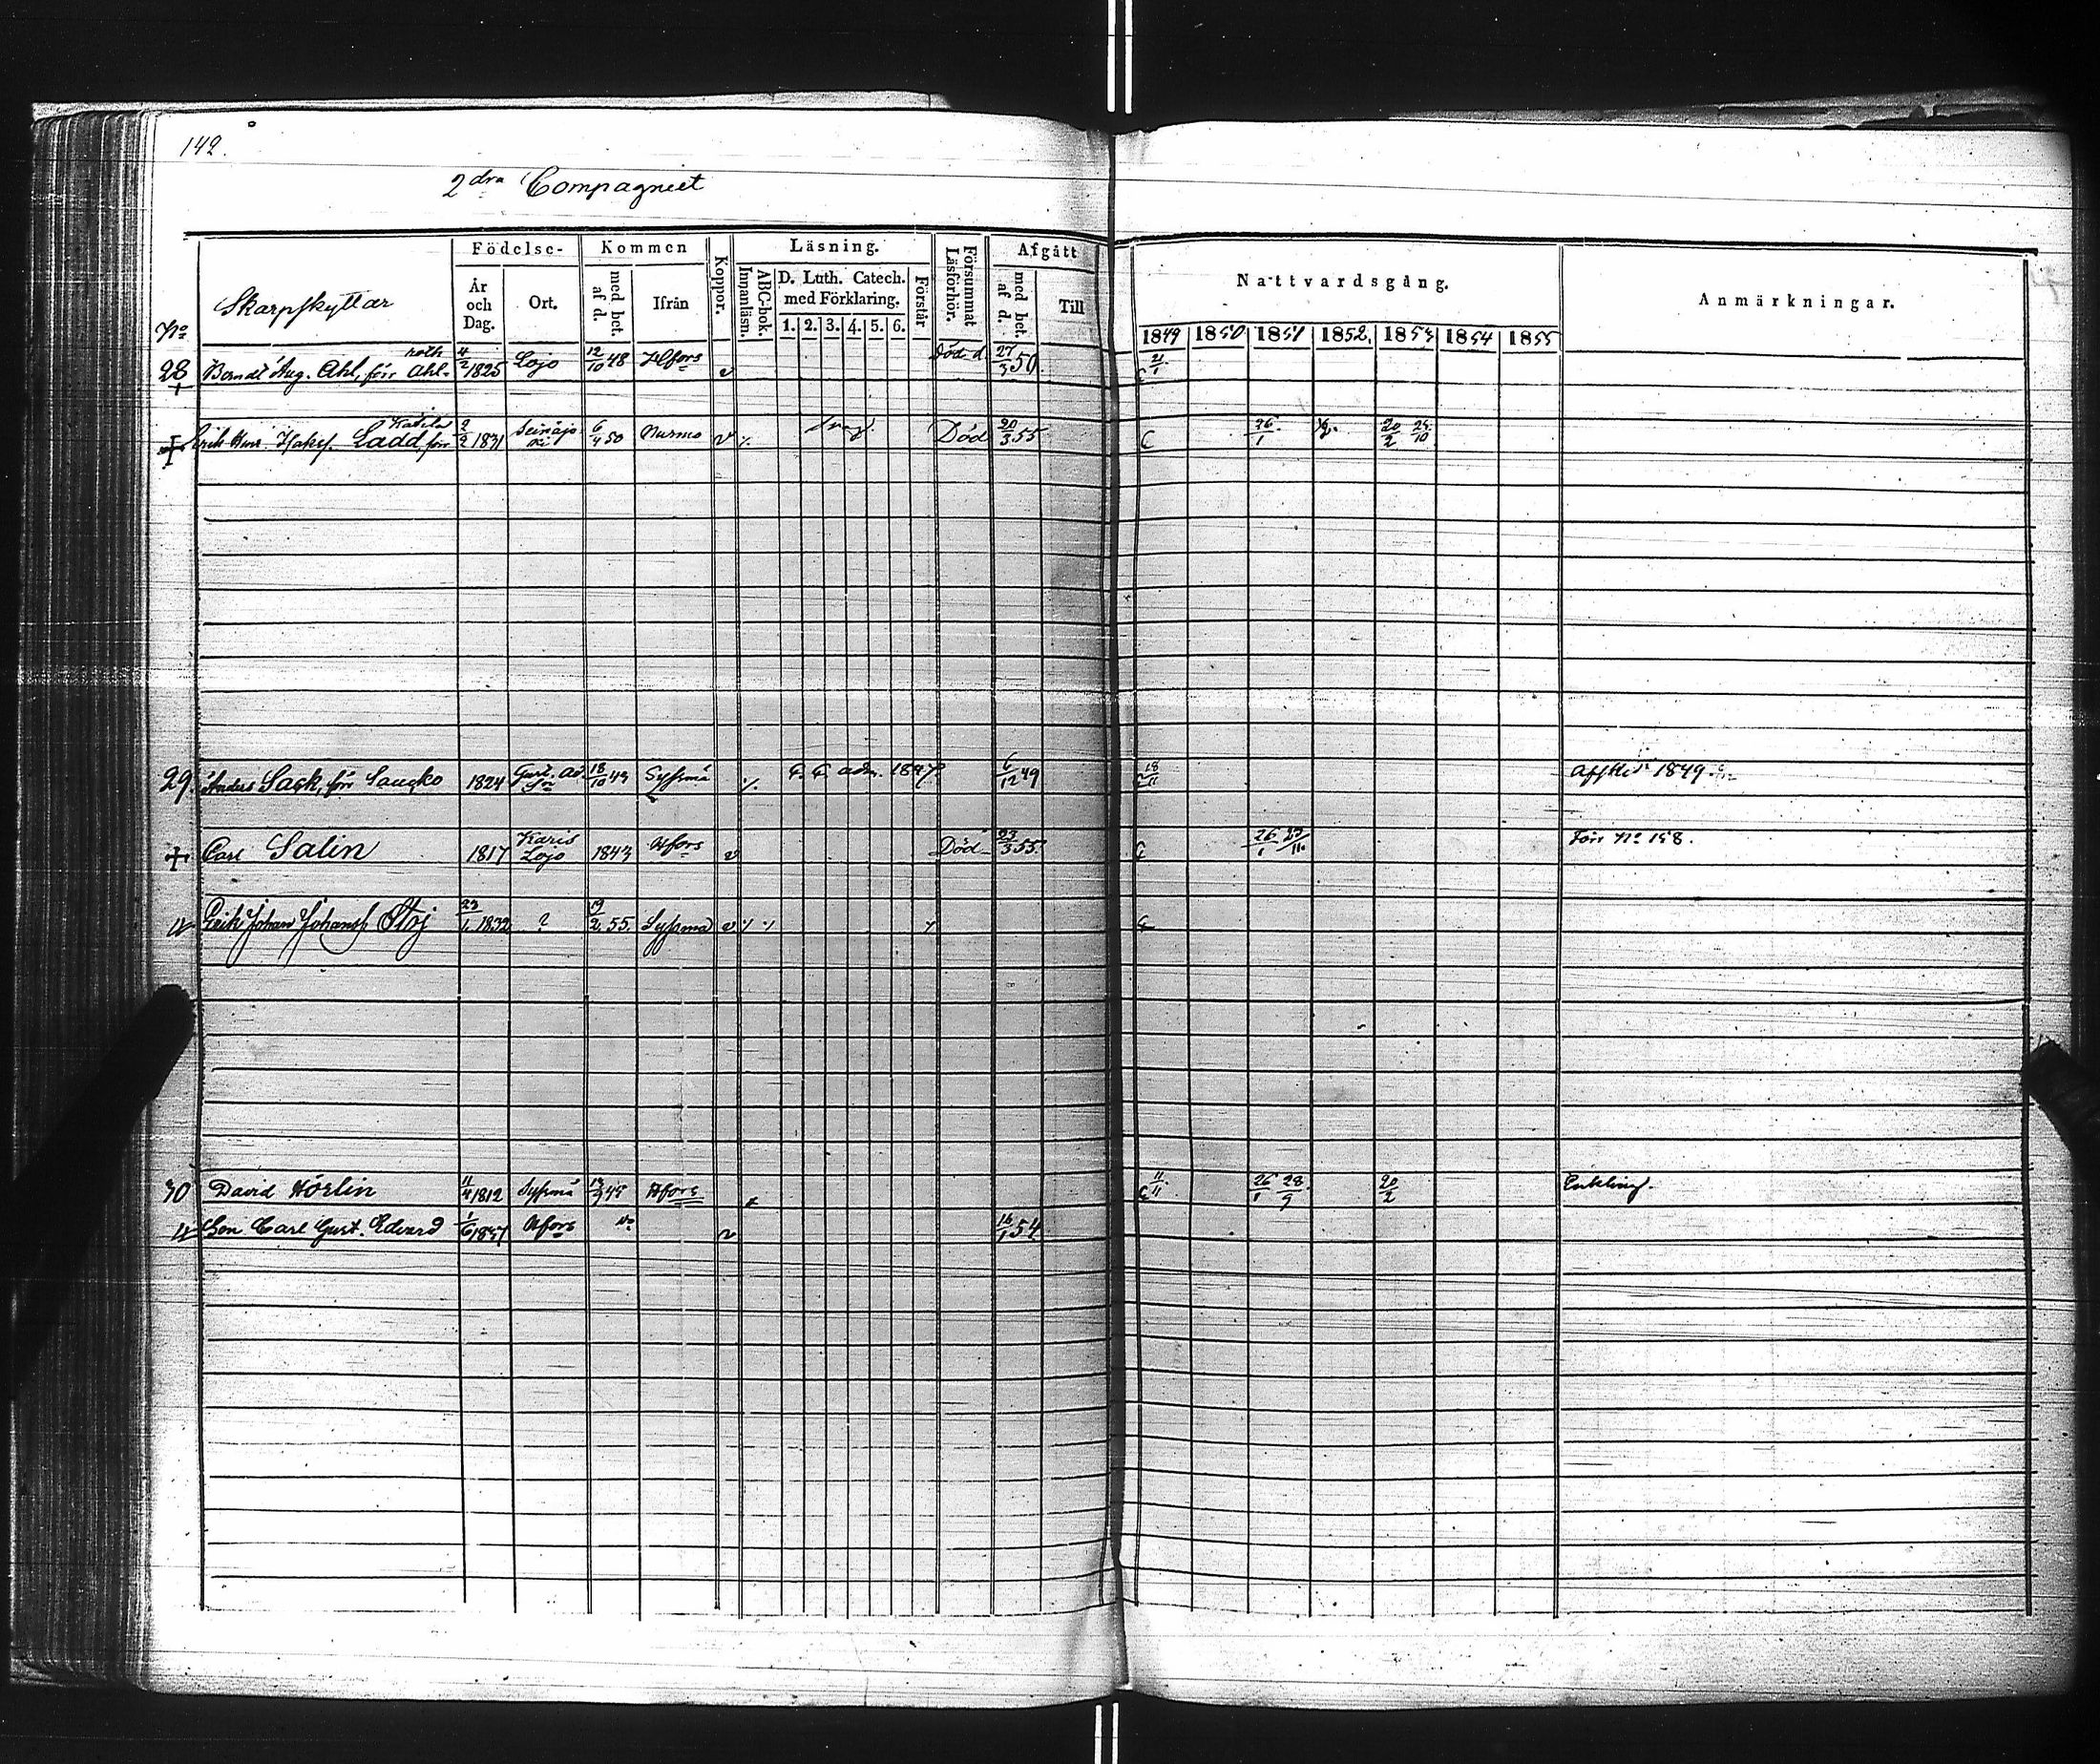 142.
2dra Compagniet
No
Skarpskyttar
Födelse-
År och Dag.
Ort.
Kommen
med bet. af d.
Ifrån
Koppor.
Läsning.
Innanläsn.
ABC-bok.
D. Luth. Catech. med Förklaring.
1. 2. 3. 4. 5. 6.
Förstår
Försummat Läsförhör.
Afgått
med bet. af d.
Till
Nattvardsgång.
1849 1850 1851 1852. 1853 1854 1855
Anmärkningar.
roth
28 Berndt Aug. Ahl, förr Ahl- 4/2 1825 Lojo 12/10 48 Hfors v Död d. 27/3 50. C 21/1
Erik Henr. Isaksf. Ladd, förr 2/2 1831 Seinäjoki 6/4 50 Nurmo v Död 20/3 55 C 26/1 20/2 24/10
29. Anders Sack, förr Saucko 1824 Gust. Ad. 18/10 43 Syssmä C. C adm. 1847 6/12 49 C 18/11 Afsked 1849 6/12
Carl Salin 1817 Karis Lojo 1843 Hfors v Död 23/3 55. C 26/1 Förr No 158.
Erik Johan Johansf. Stoj 23/1 1832 ? 19/2 55. Syssmä v C
30 David Hörlin 11/4 1812 Syssmä 45 Hfors C 11/11 26/1 28/9 20/2 Enkling.
Son Carl Gust. Edvard Hfors v 16/1 54